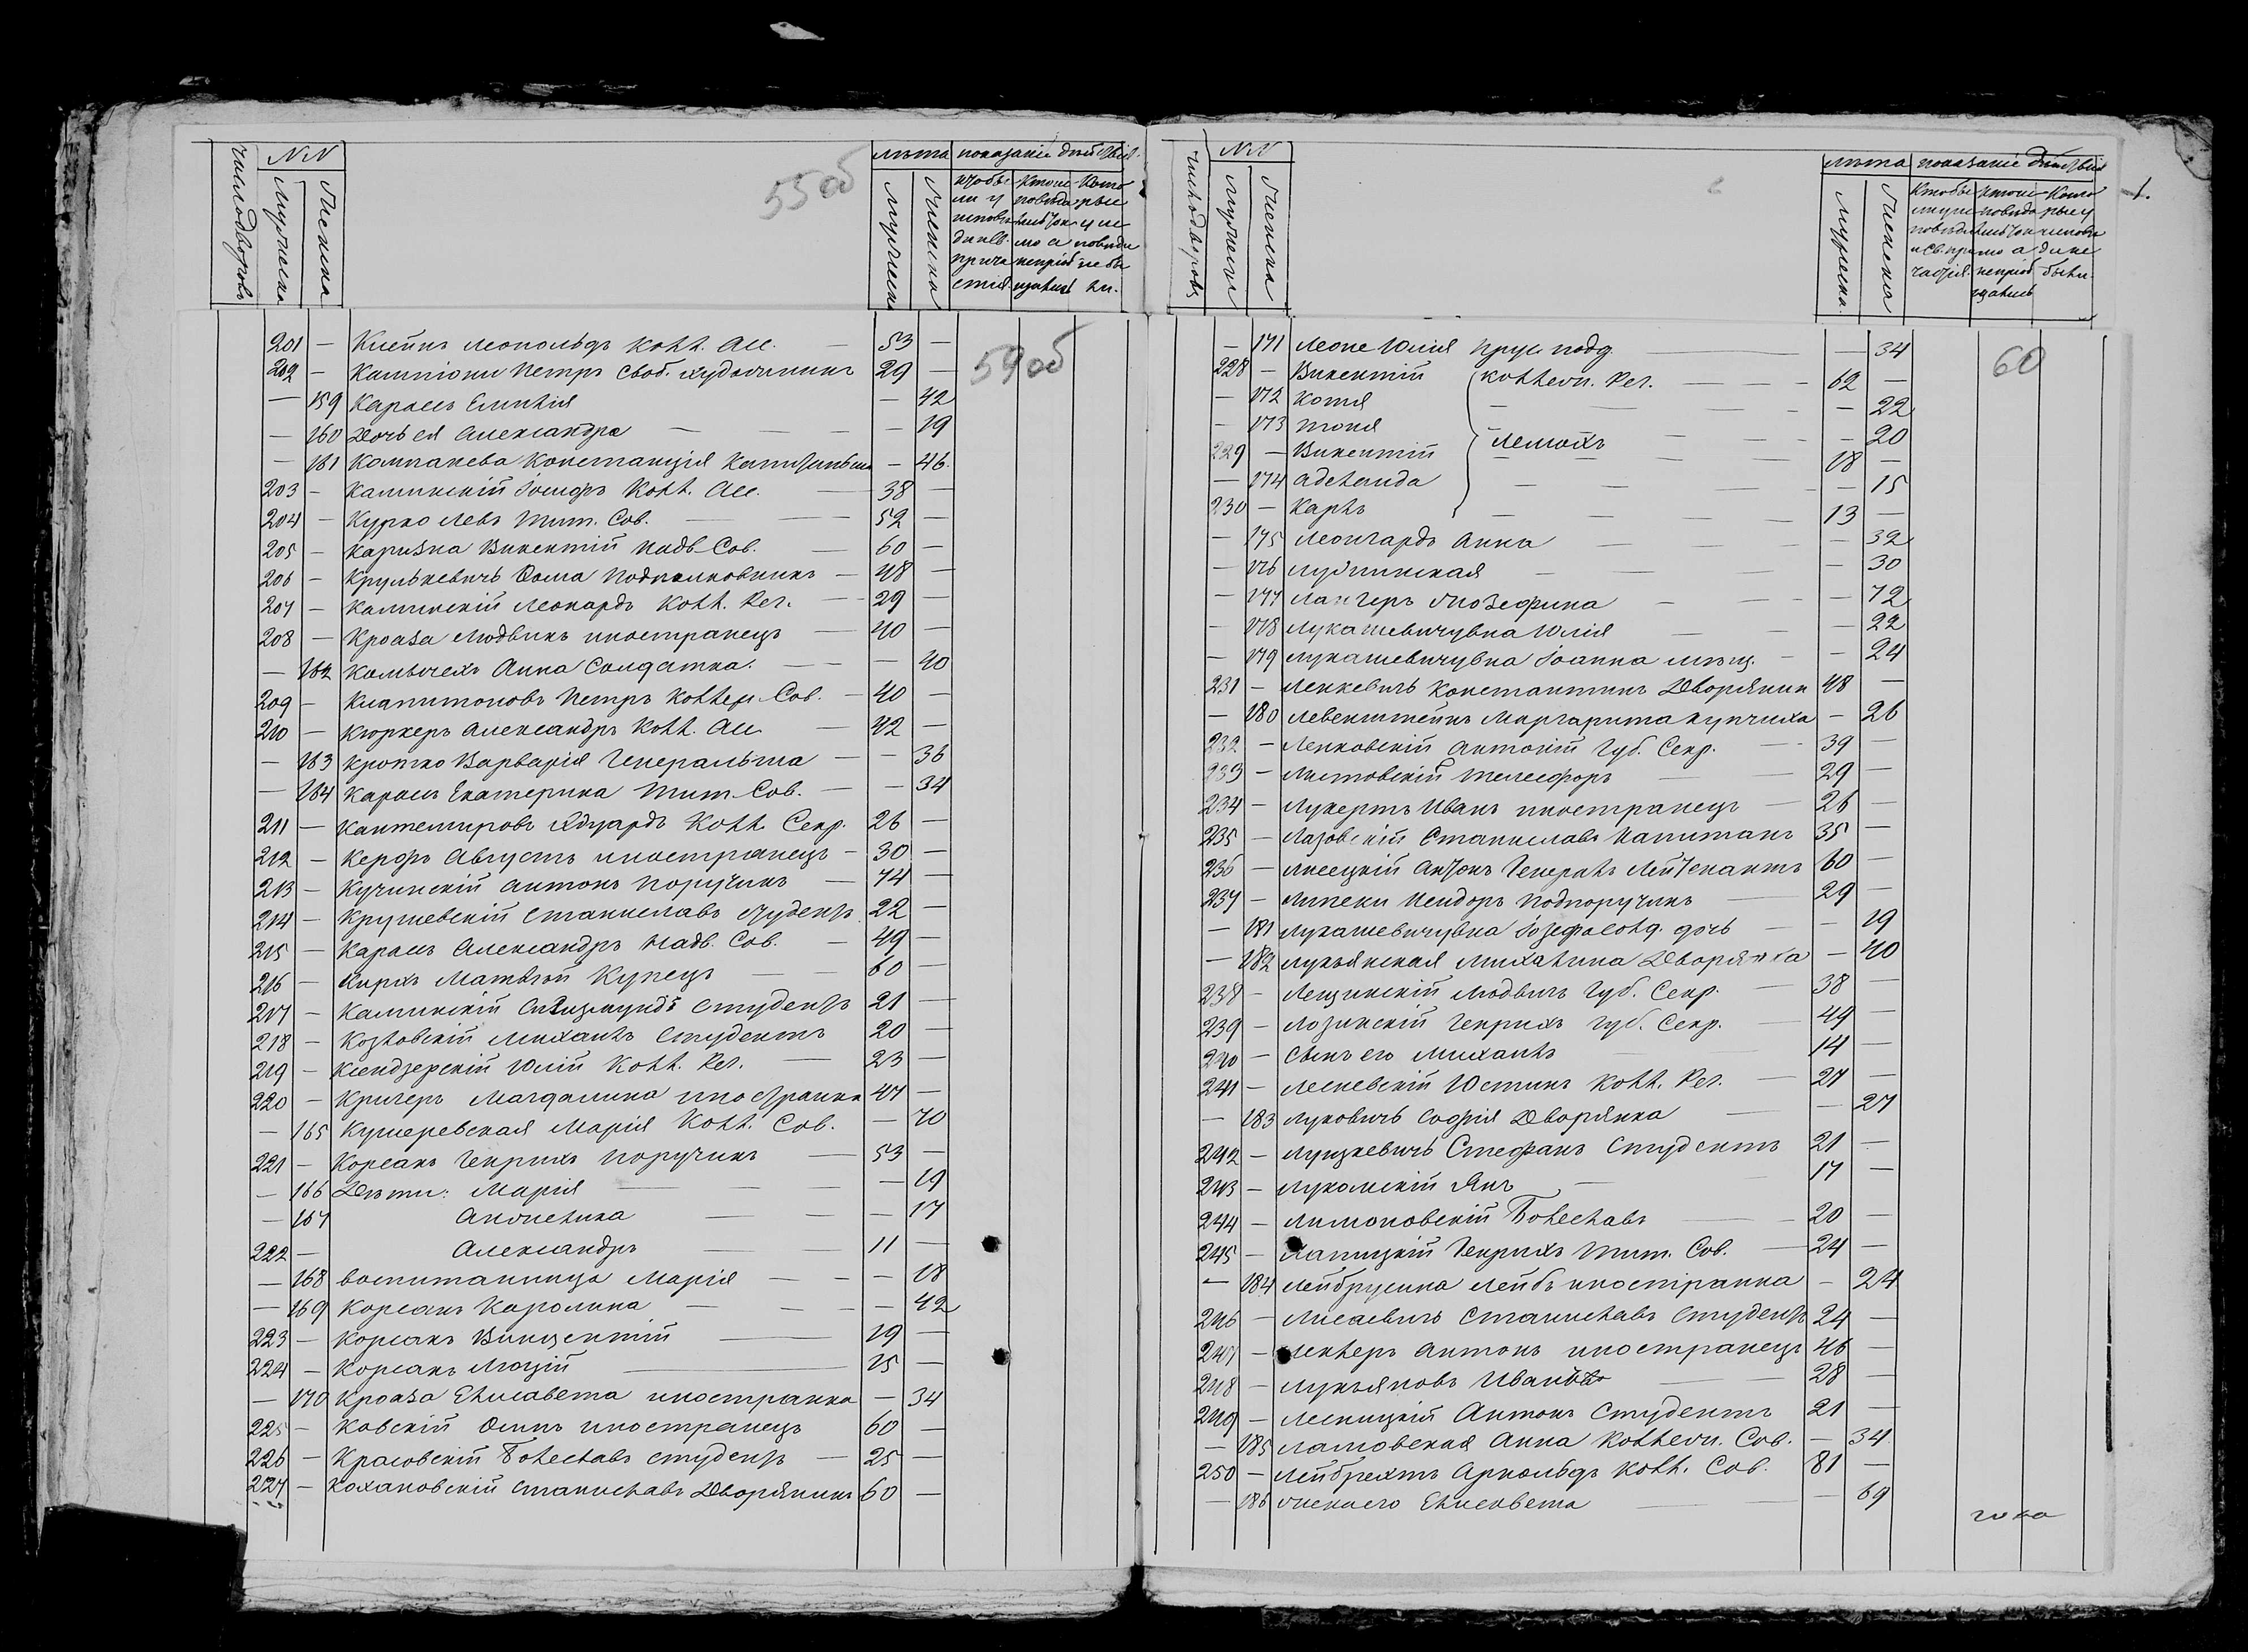 число дворовъ
NN
Мужеска
Женска
55 об
лѣта
показаніе дѣйствія
Мужеска
Женска
201 — Клейнъ Леопольдъ Колл. Асс. — 53 —
202 — Кампіони Петръ Своб. художникъ 29 —
59 об
— 159 Карась Емилія — 42
— 160 Дочь ея Александра — — — — 19
— 161 Компанева Констанція — 46
203 — Калинскій Іосифъ Колл. Асс. — 38 —
204 — Курко Левъ Тит. Сов. — — 52 —
205 — Каризна Викентій Надв. Сов. — 60 —
206 — Крулькевичъ Ѳома Подполковникъ — 48 —
207 — Калинскій Леонардъ Колл. Рег. — 29 —
208 — Кроаза Людвикъ иностранецъ — 40 —
— 162 Анна Солдатка. — — — 40
209 — Клапитоновъ Петръ Коллеж. Сов. — 40 —
210 — Кюркеръ Александръ Колл. Асс. — 42 —
— 163 Кропко Варварія Генеральша — — 36
— 164 Карась Екатерина Тит. Сов. — — 34
211 — Кантемировъ Эдуардъ Колл. Секр. 26 —
212 — Керфъ Августъ иностранецъ — 30 —
213 — Кучинскій Антонъ Поручикъ — 74 —
214 — Крушевскій Станиславъ студентъ 22 —
215 — Карась Александръ Надв. Сов. — 49 —
216 — Кирхъ Матвѣй Купецъ — — 60 —
217 — Калинскій Сигизмундъ Студентъ 21 —
218 — Козловскій Михаилъ Студентъ 20 —
219 — Кюндзерскій Юлій Колл. Рег. — 23 —
220 — Кригеръ Магдалина иностранка 47 —
— 165 Кушеревская Марія Колл. Сов. — 70
221 — Корсакъ Генрихъ поручикъ — 53 —
— 166 Дѣти: Марія — — — — 19
— 167 Анжелика — — — 17
222 — Александръ — — 11 —
— 168 воспитанница Марія — — — 18
— 169 Корсакъ Каролина — — — — 42
223 — Корсакъ Винцентій — 19 —
224 — Корсакъ Люцій — 15 —
— 170 Кроаза Елисавета иностранка — 34
225 — Ковскій Осипъ иностранецъ 60 —
226 — Красовскій Болеславъ студентъ — 25 —
227 — Кохановскій Станиславъ Дворянинъ 60 —
число дворовъ
NN
Мужеска
Женска
лѣта
показаніе дѣйствія
Мужеска
Женска
1.
— 171 Леопе Юлія прус. подд. — — — 34
60
228 — Викентій Коллежс. Рег. — — — 62 —
— 172 Котя — — — — — 22
— 173 Тоня — — — — 20
Лемохъ
229 — Викентій — — — — 18 —
— 174 Аделаида — — — — — 15
230 — Карлъ — — — — 13 —
— 175 Леонгардъ Анна — — — — 32
— 176 — — — — 30
— 177 Лангеръ Жозефина — — — — 72
— 178 Лукашевичувна Юлія — — — 22
— 179 Лукашевичувна Іоанна мѣщ. — — 24
231 — Ленкевичъ Константинъ Дворянин 48 —
— 180 Левенштейнъ Маргарита купчиха — 26
232 — Ленковскій Антоній Губ. Секр. — 39 —
233 — Листовскій Телесфоръ — — 29 —
234 — Лукертъ Иванъ иностранецъ — 26 —
235 — Лазовскій Станиславъ Капитанъ 35 —
236 — Лисецкій Антонъ Генералъ Лейтенантъ 60 —
237 — Липски Исидоръ Подпоручикъ — 29 —
— 181 Лукашевичувна Іозефа солд. дочь — — 19
— 182 Лукьянская Михалина Дворянка — 40
238 — Лещинскій Людвигъ Губ. Секр. — 38 —
239 — Лозинскій Генрихъ Губ. Секр. — 49 —
240 — Сынъ его Михаилъ — — 14 —
241 — Лесневскій Юстинъ Колл. Рег. — 27 —
— 183 Луковичъ Софія Дворянка — — 27
242 — Луцкевичъ Стефанъ Студентъ 21 —
243 — Лукомскій Янъ — — 17 —
244 — Лимоновскій Болеславъ — — 20 —
245 — Лапицкій Генрихъ Тит. Сов. — 24 —
— 184 Лейбрусина Лейбъ иностранка — 24
246 — Лисаевичъ Станиславъ Студентъ 24 —
247 — Леклеръ Антонъ иностранецъ 46 —
248 — Лукьяновъ Иванъ — — 28 —
249 — Лесницкій Антонъ Студентъ 21 —
— 185 Ламовская Анна Коллежс. Сов. — 34
250 — Лейбрехтъ Арнольдъ Колл. Сов. 81 —
— 186 жена его Елисавета — — 69